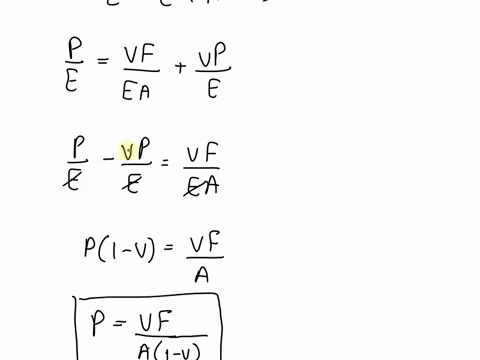 P/E = VF/EA + VP/E
P/E - VP/E = VF/EA
P(1-V) = VF/A
P = VF/A(1-V)